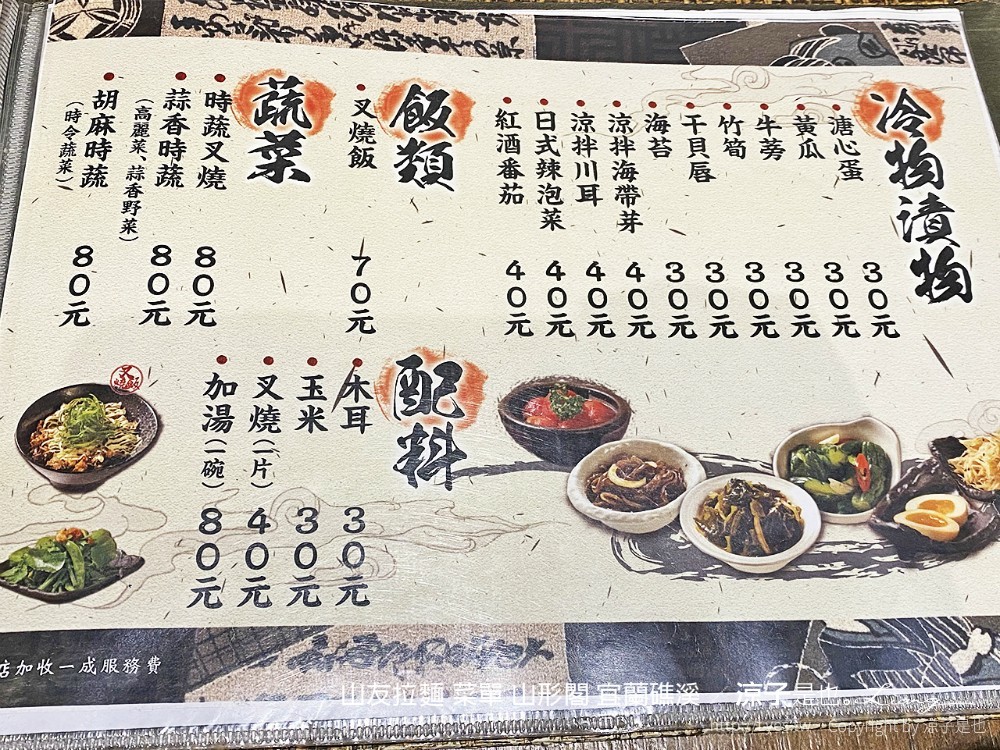 冷物漬物
溏心蛋 30元
黃瓜 30元
牛蒡 30元
竹筍 30元
干貝唇 30元
海苔 30元
涼拌海帶芽 40元
涼拌川耳 40元
日式辣泡菜 40元
紅酒番茄 40元
飯類
叉燒飯 70元
蔬菜
時蔬叉燒 80元
蒜香時蔬 80元
(高麗菜、蒜香野菜)
胡麻時蔬 80元
(時令蔬菜)
配料
木耳 30元
玉米 30元
叉燒(一片) 40元
加湯(一碗) 80元
叉燒飯
店加收一成服務費
山友拉麵 菜單 山形閣 宜蘭礁溪 / 涼子是也
Copyright by 涼子是也